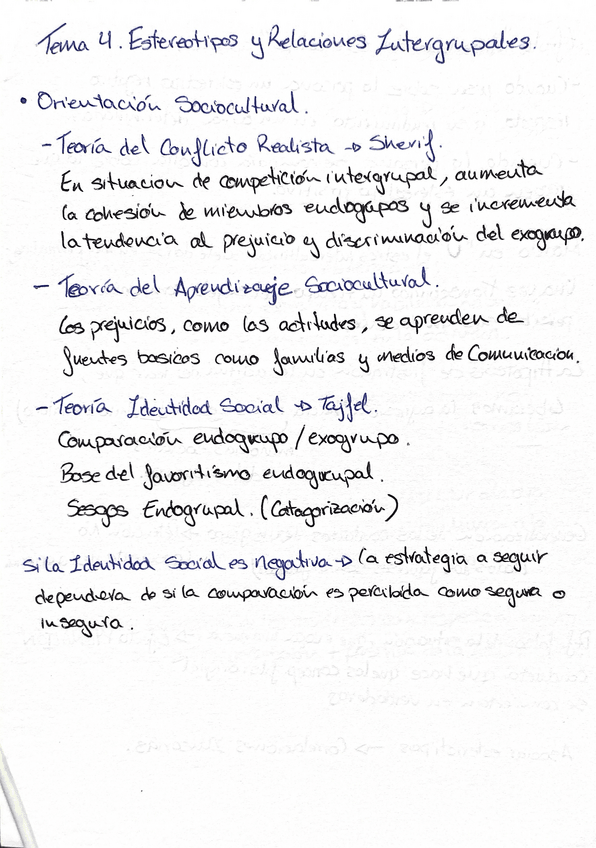 Tema 4. Estereotipos y Relaciones Intergrupales.
• Orientación Sociocultural.
- Teoría del Conflicto Realista → Sherif.
En situacion de competición intergrupal, aumenta
la cohesión de miembros endogrupos y se incrementa
la tendencia al prejuicio y discriminación del exogrupo.
- Teoría del Aprendizaje Sociocultural.
Los prejuicios, como las actitudes, se aprenden de
fuentes basicos como familias y medios de Comunicacion.
- Teoría Identidad Social → Tajfel.
Comparación endogrupo / exogrupo.
Base del favoritismo endogrupal.
Sesgos Endogrupal. (Catagorización)
Si la Identidad Social es negativa → la estrategia a seguir
dependera de si la comparación es percibida como segura o
insegura.